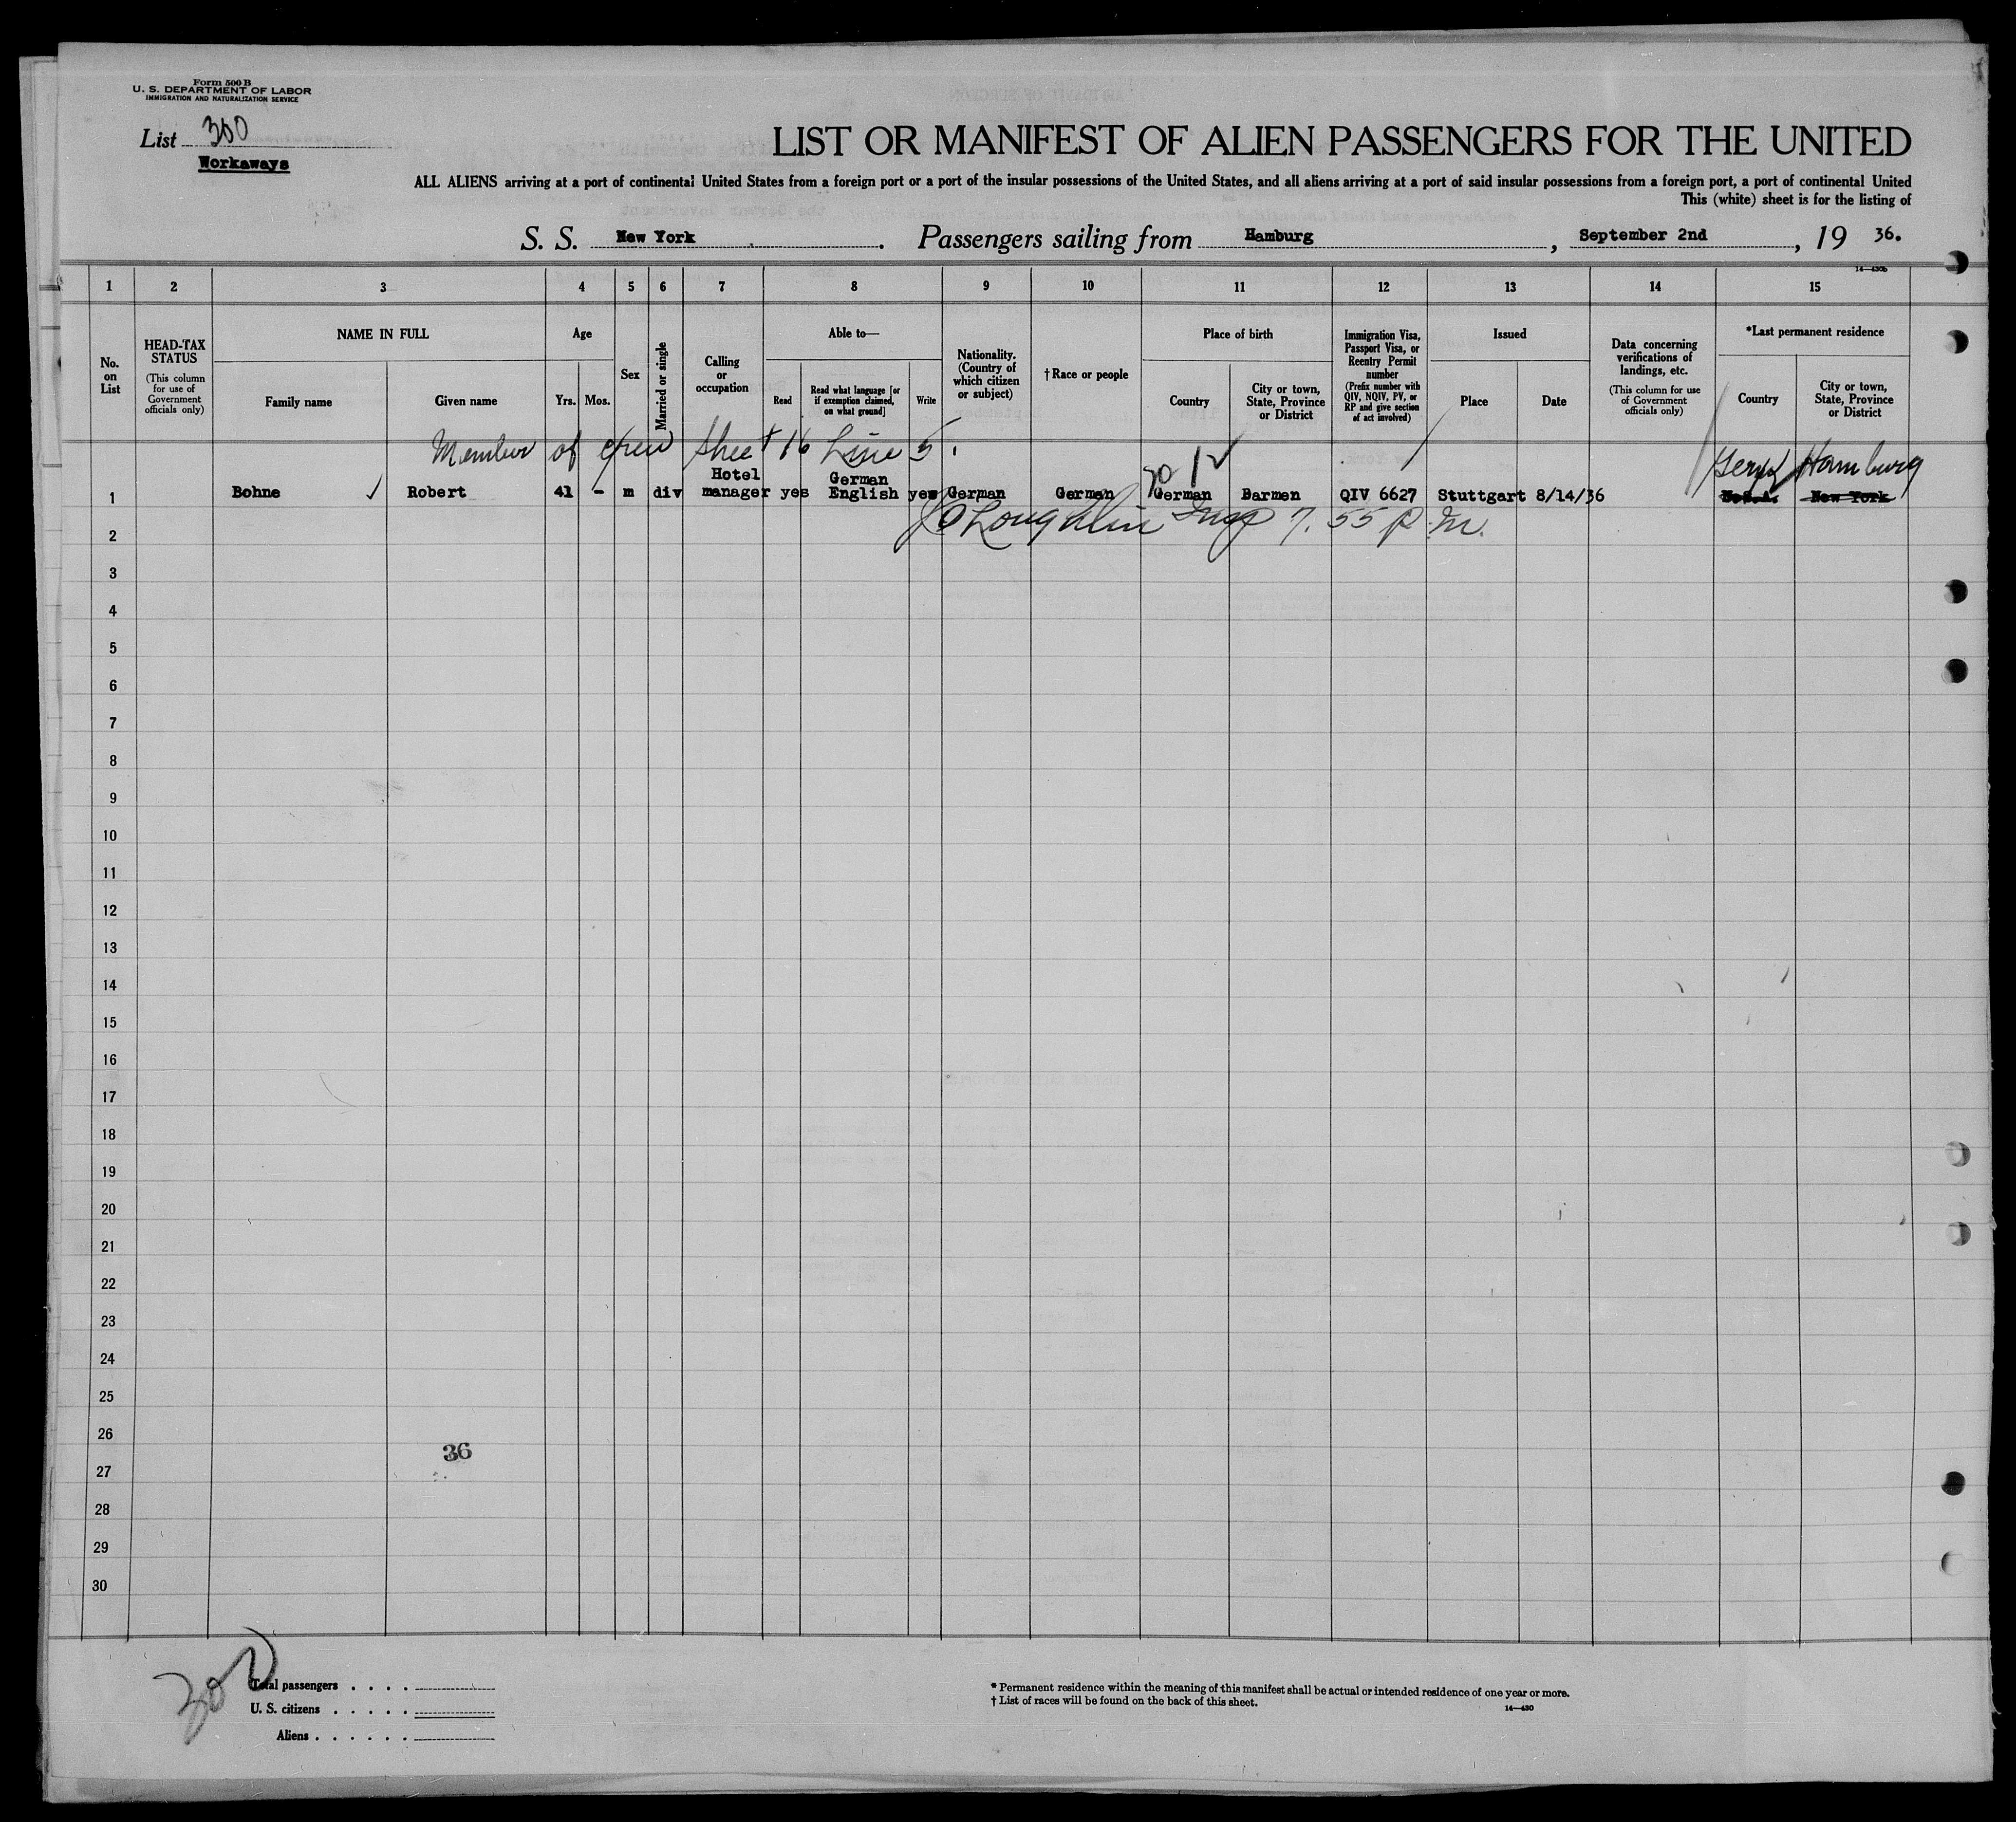 Form 500 B
U. S. DEPARTMENT OF LABOR
IMMIGRATION AND NATURALIZATION SERVICE
List 300
Workaways
LIST OR MANIFEST OF ALIEN PASSENGERS FOR THE UNITED
ALL ALIENS arriving at a port of continental United States from a foreign port or a port of the insular possessions of the United States, and all aliens arriving at a port of said insular possessions from a foreign port, a port of continental United
This (white) sheet is for the listing of
S. S. New York . Passengers sailing from Hamburg , September 2nd , 19 36.
14—430b
1 2 3 4 5 6 7 8 9 10 11 12 13 14 15
No. on List
HEAD-TAX STATUS
(This column for use of Government officials only)
NAME IN FULL
Family name Given name
Age
Yrs. Mos.
Sex
Married or single
Calling or occupation
Able to—
Read
Read what language [or if exemption claimed, on what ground]
Write
Nationality. (Country of which citizen or subject)
† Race or people
Place of birth
Country
City or town, State, Province or District
Immigration Visa, Passport Visa, or Reentry Permit number
(Prefix number with QIV, NQIV, PV, or RP and give section of act involved)
Issued
Place Date
Data concerning verifications of landings, etc.
(This column for use of Government officials only)
*Last permanent residence
Country
City or town, State, Province or District
Member of crew Sheet 16 Line 5.
Hamburg
1 Bohne Robert 41 - m div Hotel manager yes German English yes German German German Barmen QIV 6627 Stuttgart 8/14/36 U.S.A. New York
O'Loughlin Insp 7.55 P.M.
2
3
4
5
6
7
8
9
10
11
12
13
14
15
16
17
18
19
20
21
22
23
24
25
26
36
27
28
29
30
300
Total passengers . . . .
U. S. citizens . . . . .
Aliens . . . . . .
* Permanent residence within the meaning of this manifest shall be actual or intended residence of one year or more.
† List of races will be found on the back of this sheet.
14—430